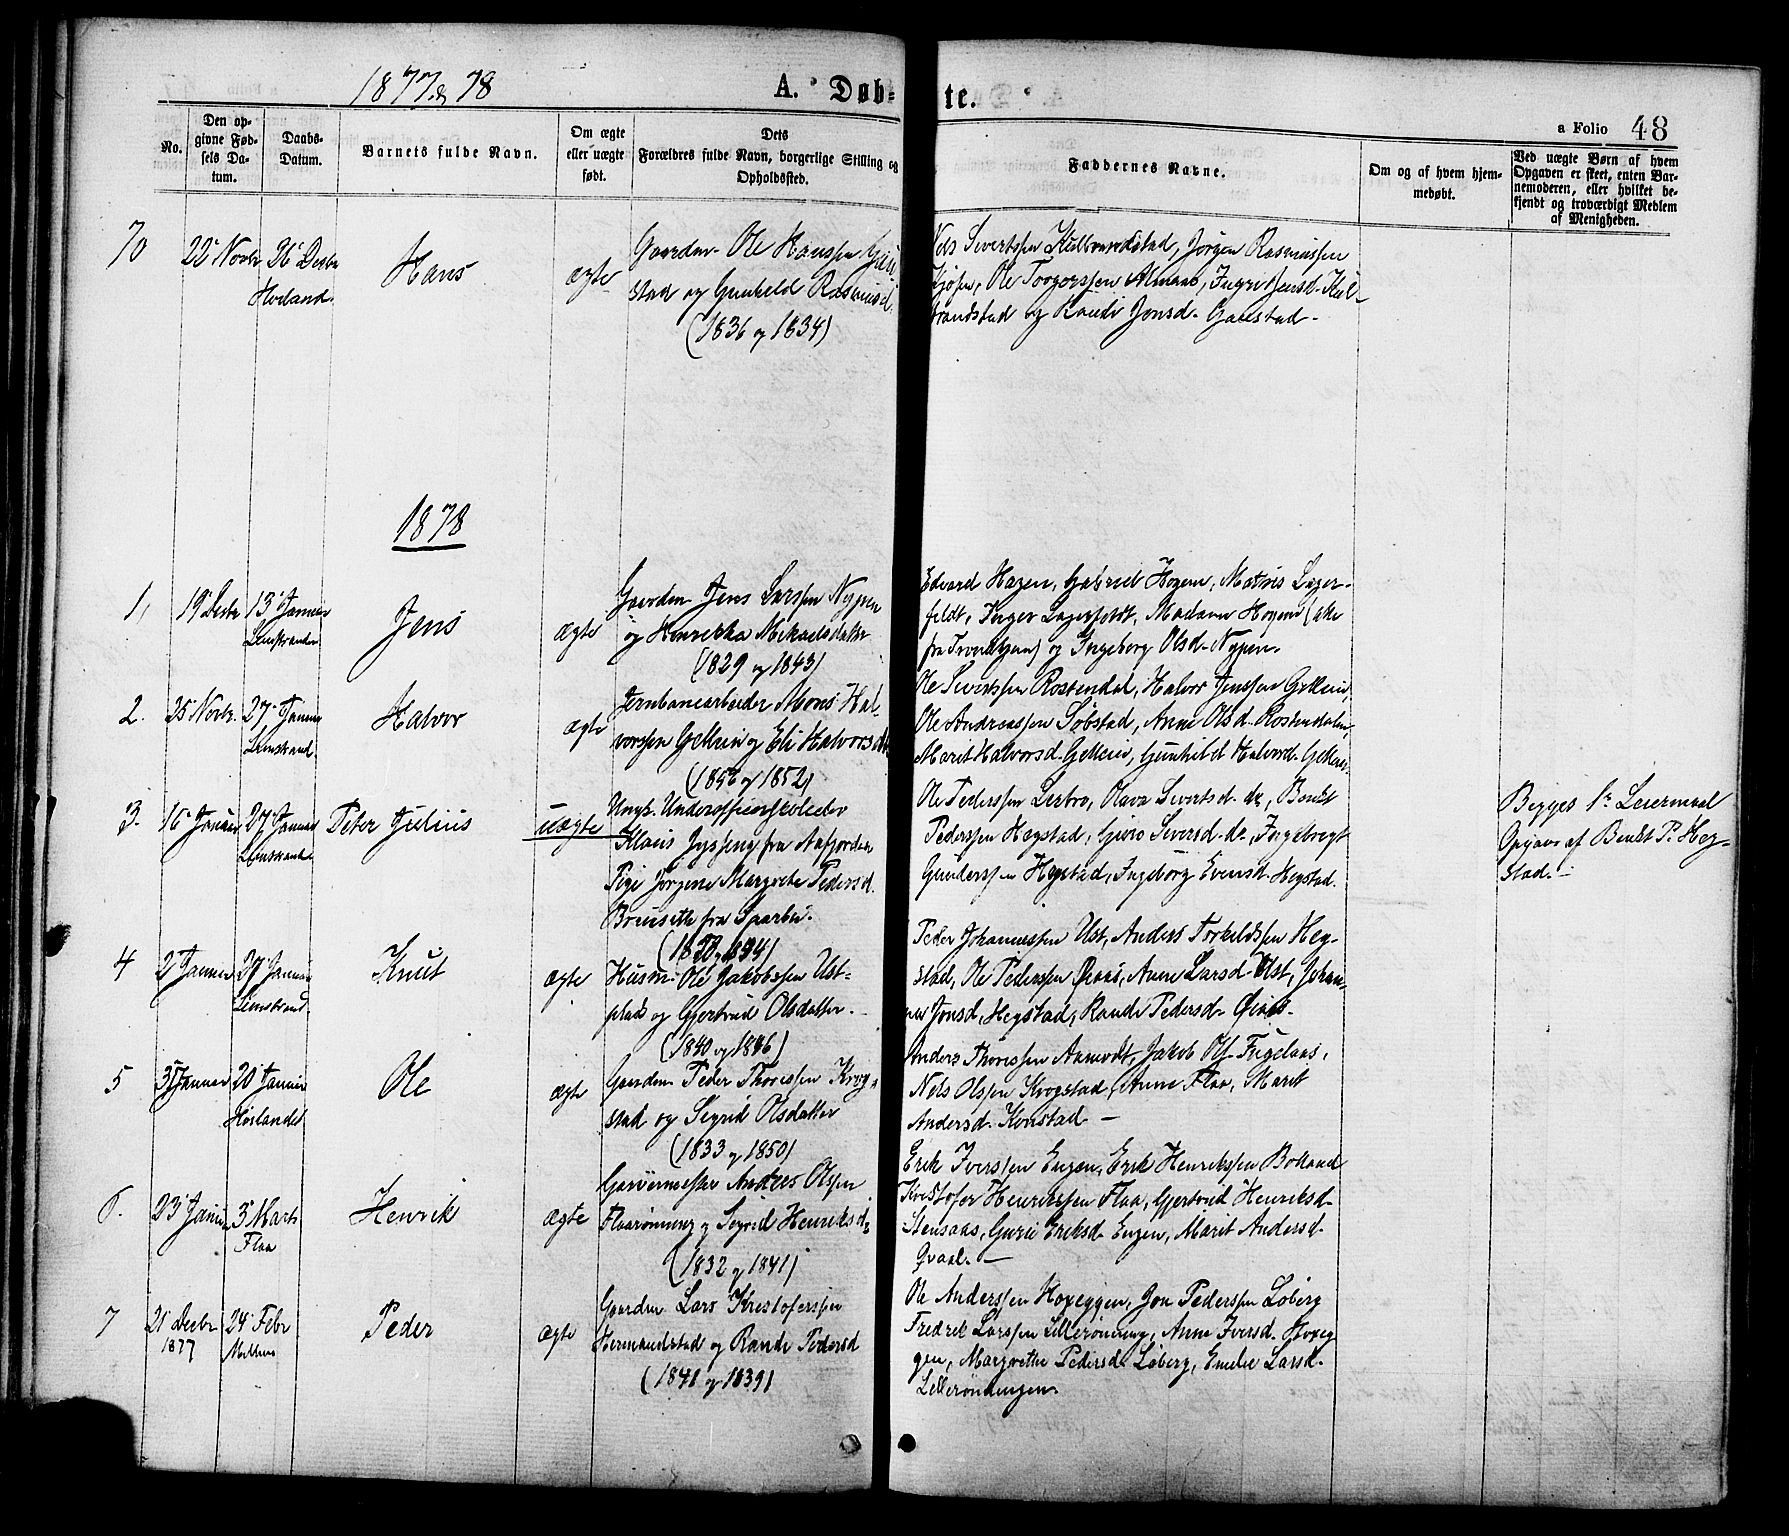 1877 & 78
A. Døb-
te.
a Folio 48
No.
Den op-
givne Fød-
sels Da-
tum.
Daabs-
Datum.
Barnets fulde Navn.
Om ægte
eller uægte
født.
Dets
Forældres fulde Navn, borgerlige Stilling og
Opholdssted.
Faddernes Navne.
Om og af hvem hjem-
medøbt.
Ved uægte Børn af hvem
Opgaven er skeet, enten Bar-
nemoderen, eller hvilket be-
kjendt og troværdigt Medlem
af Menigheden.
70
22 Novbr
26 Decbr
Hans
ægte
Gaardm. Ole Hanssen Gau
stad og Gunhild Rasmusd.
(1836 og 1834)
Nels Sivertssen Kulbrandstad, Jørgen Rasmussen
Kjøsen, Ole Torgerssen Almaas, Ingri Jensd. Kul-
brandstad og Randi Jonsd. Gaustad.
1878
1,
19 Decbr
13 Januar
Leinstranden
Jens
ægte
Gaardm Jens Larssen Nypen
og Henrikka Mikaelsdatter
(1829 og 1843)
Edvard Hagen, Gabriel Hogen, Mathis Lager-
feldt, Inger Lagerfeldt, Madame Hogen (alle
fra Trondhjem) og Ingeborg Olsd. Nypen.
2.
25 Novbr.
27 Januar
Leinstrand.
Halvor
ægte
Jernbanearbeider Mons Hal-
vorssen Gellein og Eli Halvorsdtr
(1856 og 1852)
Ole Sivertssen Rostendal, Halvor Jenssen Gellein,
Ole Andreassen Søbstad, Anne Olsd. Rostendalen,
Marit Halvorsd. Gellein, Gunhild Halvord. Gellein.
3.
16 Januar
27 Januar
Leinstranden
Peter Julius
uægte
Ungk. Underofficerskoleelev
Klaus
fra Aafjorden
Pige Jørgine Margrete Pedersd.
fra Sparbu.
Ole Pederssen Lerbro, Olava Sivertsd. do, Bendt
Pederssen Hegstad, Guro Siversd. do., Ingebregt
Gunderssen Hegstad, Ingeborg Evensd. Hegstad.
Begges 1ste Leiermaal
Opgave af Bendt P. Heg-
stad.
4
2 Januar
27 Januar
Leinstrand.
Knut
ægte
Husm. Ole Jakobssen Ust-
plads og Gjertrud Olsdatter.
(1840 og 1846)
Peder Johannessen Ust, Anders Torkildssen Heg-
stad, Ole Pederssen Øraas, Anne Larsd. Ust, Johan-
nes Jonsd. Hegstad, Randi Pedersd.
5
Januar
20 Januar
Høilandet
Ole
ægte
Gaardm. Peder Thorissen Krog-
stad og Sigrid Olsdatter
(1833 og 1850)
Anders Thorissen Aamodt, Jakob Ols. Fuglaas,
Nels Olssen Krogstad, Anne Flaa, Marit
Andersd. Konstad
6.
23 Januar
3 Marts
Flaa
Henrik
ægte
Garvermester Anders Olssen
Flaarønning og Sigrid Henriksd.
(1832 og 1841)
Erik Iverssen Engen, Erik Henrikssen Bolland
Kristofer Henrikssen Flaa, Gjertrud Henriksd.
Stensaas, Guri Eriksd. Engen, Marit Andersd.
Qvaal.
7
21 Decbr
1877
24 Febr
Melhus
Peder
ægte
Gaardm Lars Kristoferssen
Hermandstad og Randi Pedersd
(1841 og 1839)
Ole Anderssen Hoxeggen, Jon Pederssen Løberg
Fredrik Larssen Lillerønning, Anne Iversd. Hoxeg
gen, Margrethe Pedersd. Løberg, Emelie Larsd.
Lillerønningen.